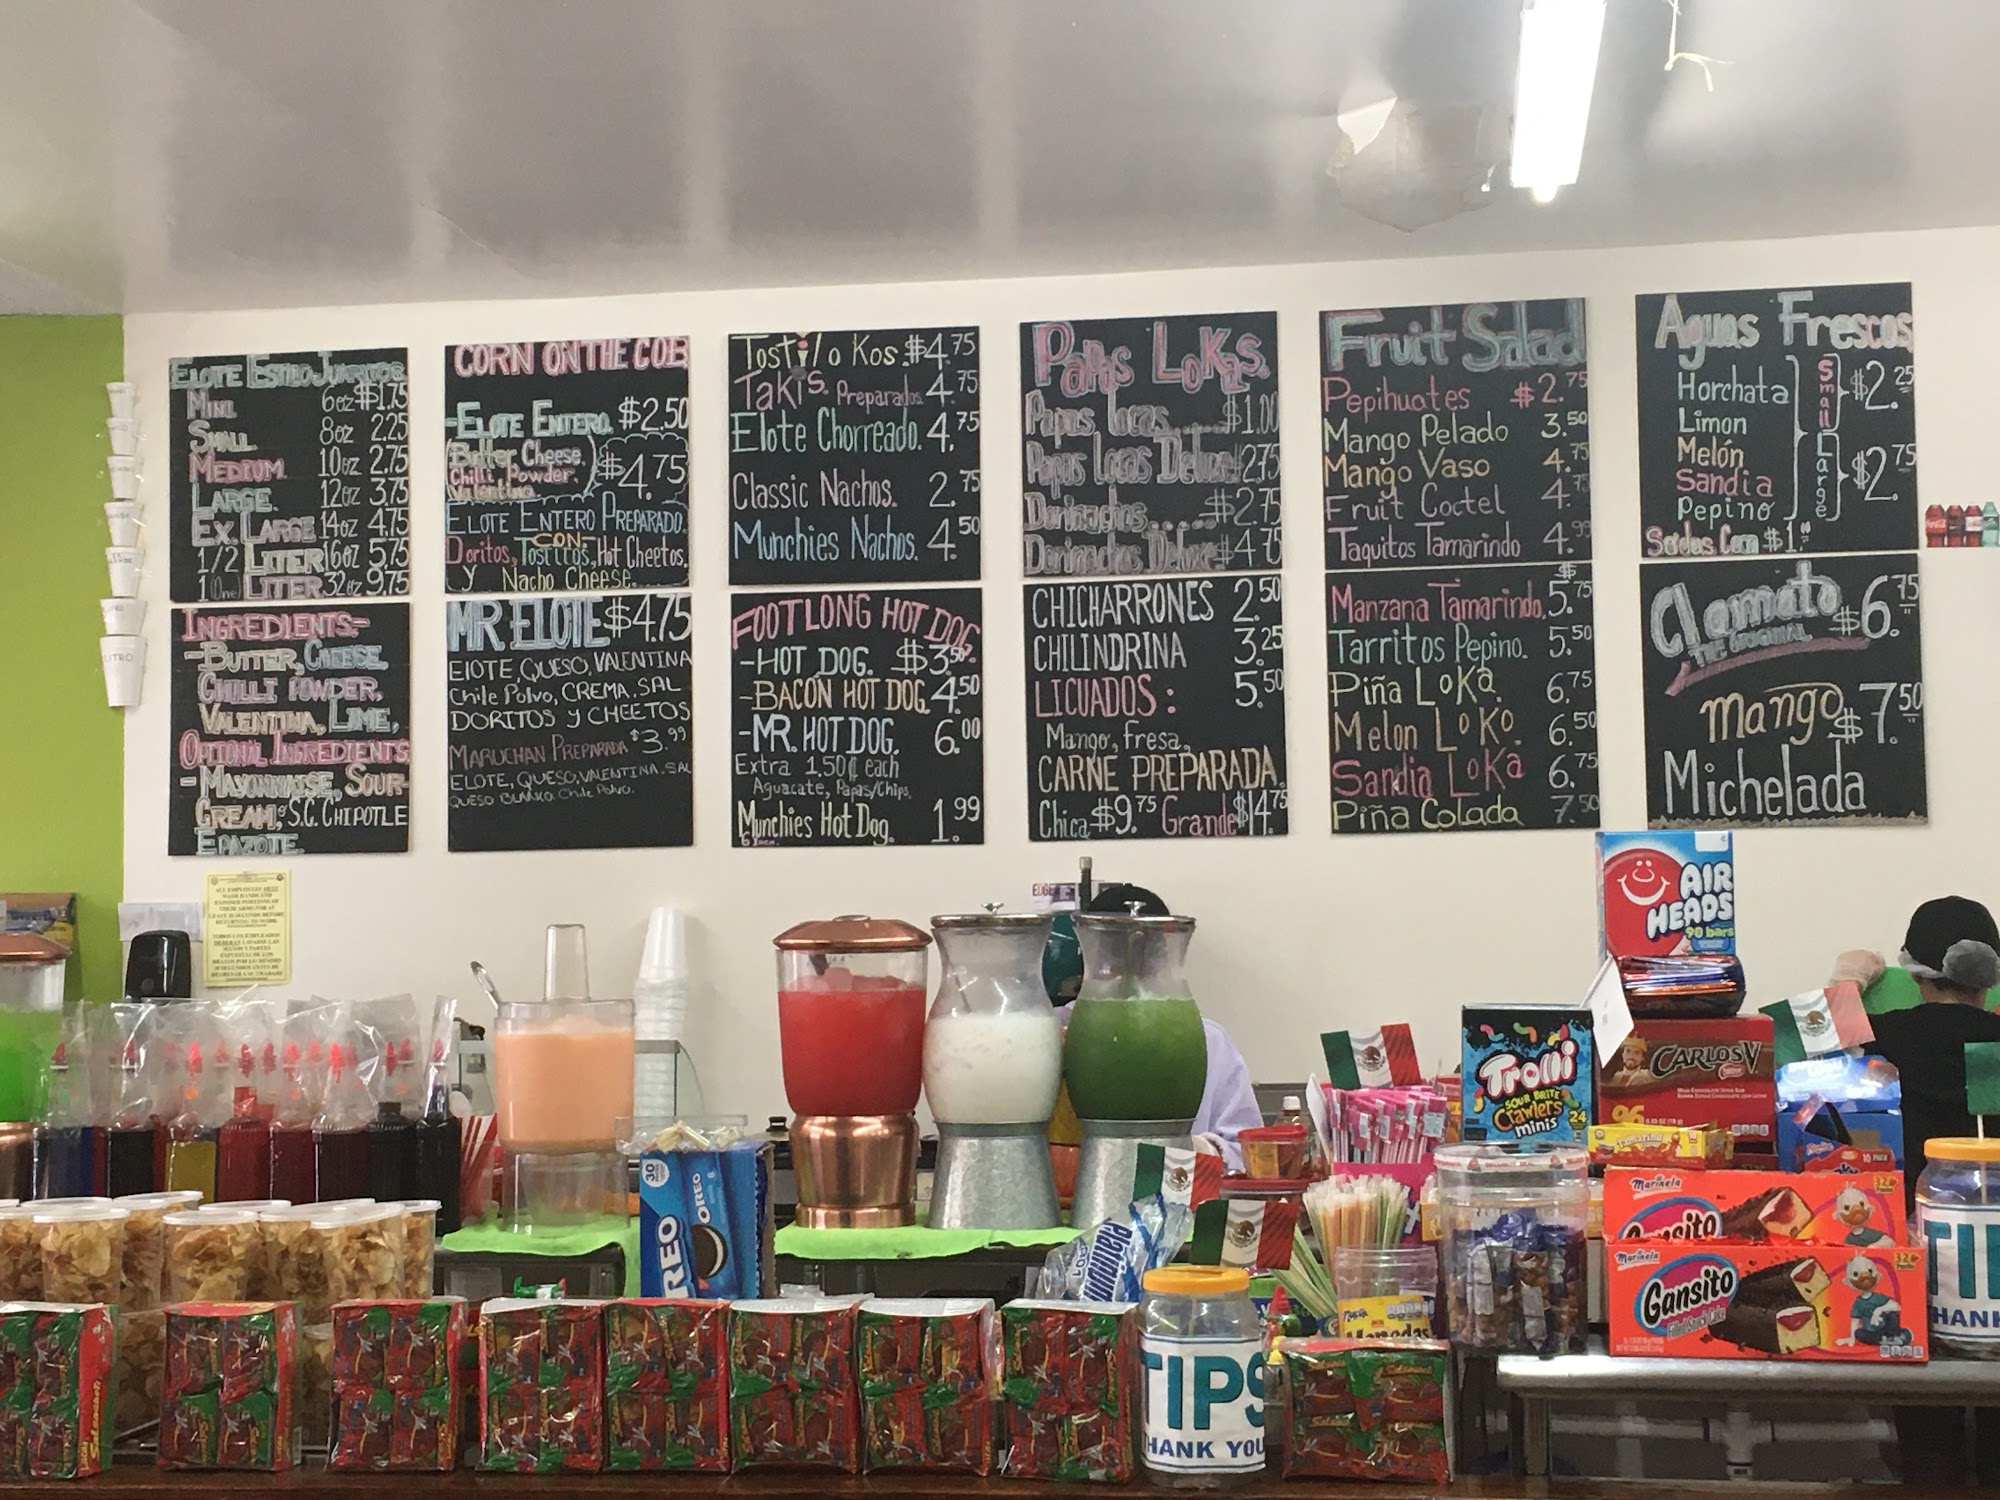 ELOTE ESTILO JUARITOS
MINI 6oz $1.75
SMALL 8oz 2.25
MEDIUM. 10oz 2.75
LARGE. 12oz 3.75
EX. LARGE 14oz 4.75
1/2 LITER 16oz 5.75
1(One) LITER 32oz 9.75
INGREDIENTS:-
-BUTTER, CHEESE,
CHILLI POWDER,
VALENTINA, LIME,
OPTIONAL INGREDIENTS
-MAYONNAISE, SOUR-
CREAM, S.C. CHIPOTLE
EPAZOTE.
CORN ON THE COB
-ELOTE ENTERO. $2.50
(Butter Cheese,
Chilli Powder,
Valentina) $4.75
ELOTE ENTERO PREPARADO.
-CON-
Doritos, Tostitos, Hot Cheetos.
y Nacho Cheese.
MR. ELOTE $4.75
ElOTE, QUESO, VALENTINA
Chile Polvo, CREMA, SAL
DORITOS y CHEETOS
MARUCHAN PREPARADA $3.99
ELOTE, QUESO, VALENTINA, SAL
QUESO BLANCO. Chile Polvo.
Tostilo Kos. $4.75
TAKIS. Preparados. 4.75
Elote Chorreado. 4.75
Classic Nachos. 2.75
Munchies Nachos. 4.50
FOOTLONG HOT DOG
-HOT DOG. $3.50
-BACON HOT DOG. 4.50
-MR. HOT DOG. 6.00
Extra 1.50¢ each
Aguacate, Papas/Chips.
Munchies Hot Dog. 1.99
6 Inch.
Papas LoKas.
Papas locas...... $1.00
Papas locas Deluxe $2.75
Dorinachos...... $2.75
Dorinachos Deluxe $4.75
CHICHARRONES 2.50
CHILINDRINA 3.25
LICUADOS: 5.50
Mango, fresa,
CARNE PREPARADA.
Chica $9.75 Grande $14.75
Fruit Salad
Pepihuates $2.75
Mango Pelado 3.50
Mango Vaso 4.75
Fruit Coctel 4.75
Taquitos Tamarindo 4.99
Manzana Tamarindo. $5.75
Tarritos Pepino. 5.50
Piña LoKa. 6.75
Melon LoKo. 6.50
Sandia LoKa 6.75
Piña Colada 7.50
Aguas Frescas
Horchata
Limon
Melón
Sandia
Pepino
Small $2.25
Large $2.75
Sodas Can $1.00
Clamato $6.75
THE ORIGINAL
Mango $7.50
Michelada
ALL EMPLOYEES MUST
WASH HANDS AND
EXPOSED PORTIONS OF
THEIR ARMS FOR AT
LEAST 20 SECONDS BEFORE
RETURNING TO WORK.
TODOS LOS EMPLEADOS
DEBERAN LAVARSE LAS
MANOS Y PARTES
EXPUESTAS DE LOS
BRAZOS POR LO MINIMO
20 SEGUNDOS ANTES DE
REGRESAR A SU TRABAJO
LITRO
AIR
HEADS
90 bars
Trolli
SOUR BRITE
Crawlers
minis
24
CARLOS V
Nestle
96
OREO
30
OREO
TIPS
THANK YOU
Marinela
Gansito
32
Marinela
Gansito
Filled Snack Cake
32
TIPS
THANK